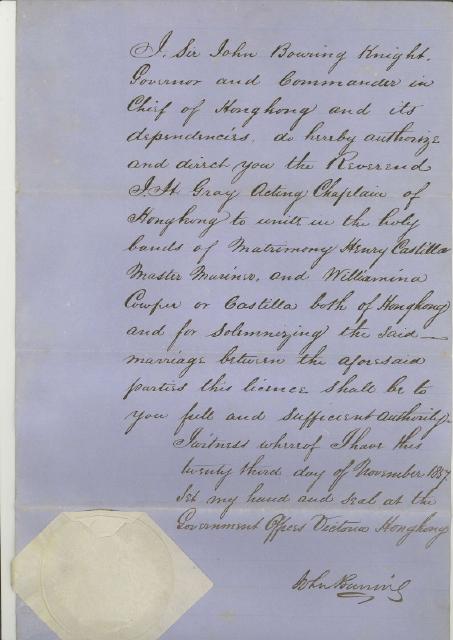 I. Sir John Bowring Knight.
Governor and Commander in
Chief of Hongkong and its
dependencies, do hereby authorize
and direct you the Reverend
J. H. Gray Acting Chaplain of
Hongkong to unite in the holy
bands of Matrimony Henry Castilla
Master Mariner, and Williamina
Cowper or Castilla both of Hongkong
and for solemnizing the said
marriage between the aforesaid
parties this licence shall be to
you full and sufficient Authority.
In witness whereof I have this
twenty third day of November 1857.
Set my hand and seal at the
Government Offices Victoria Hongkong
John Bowring